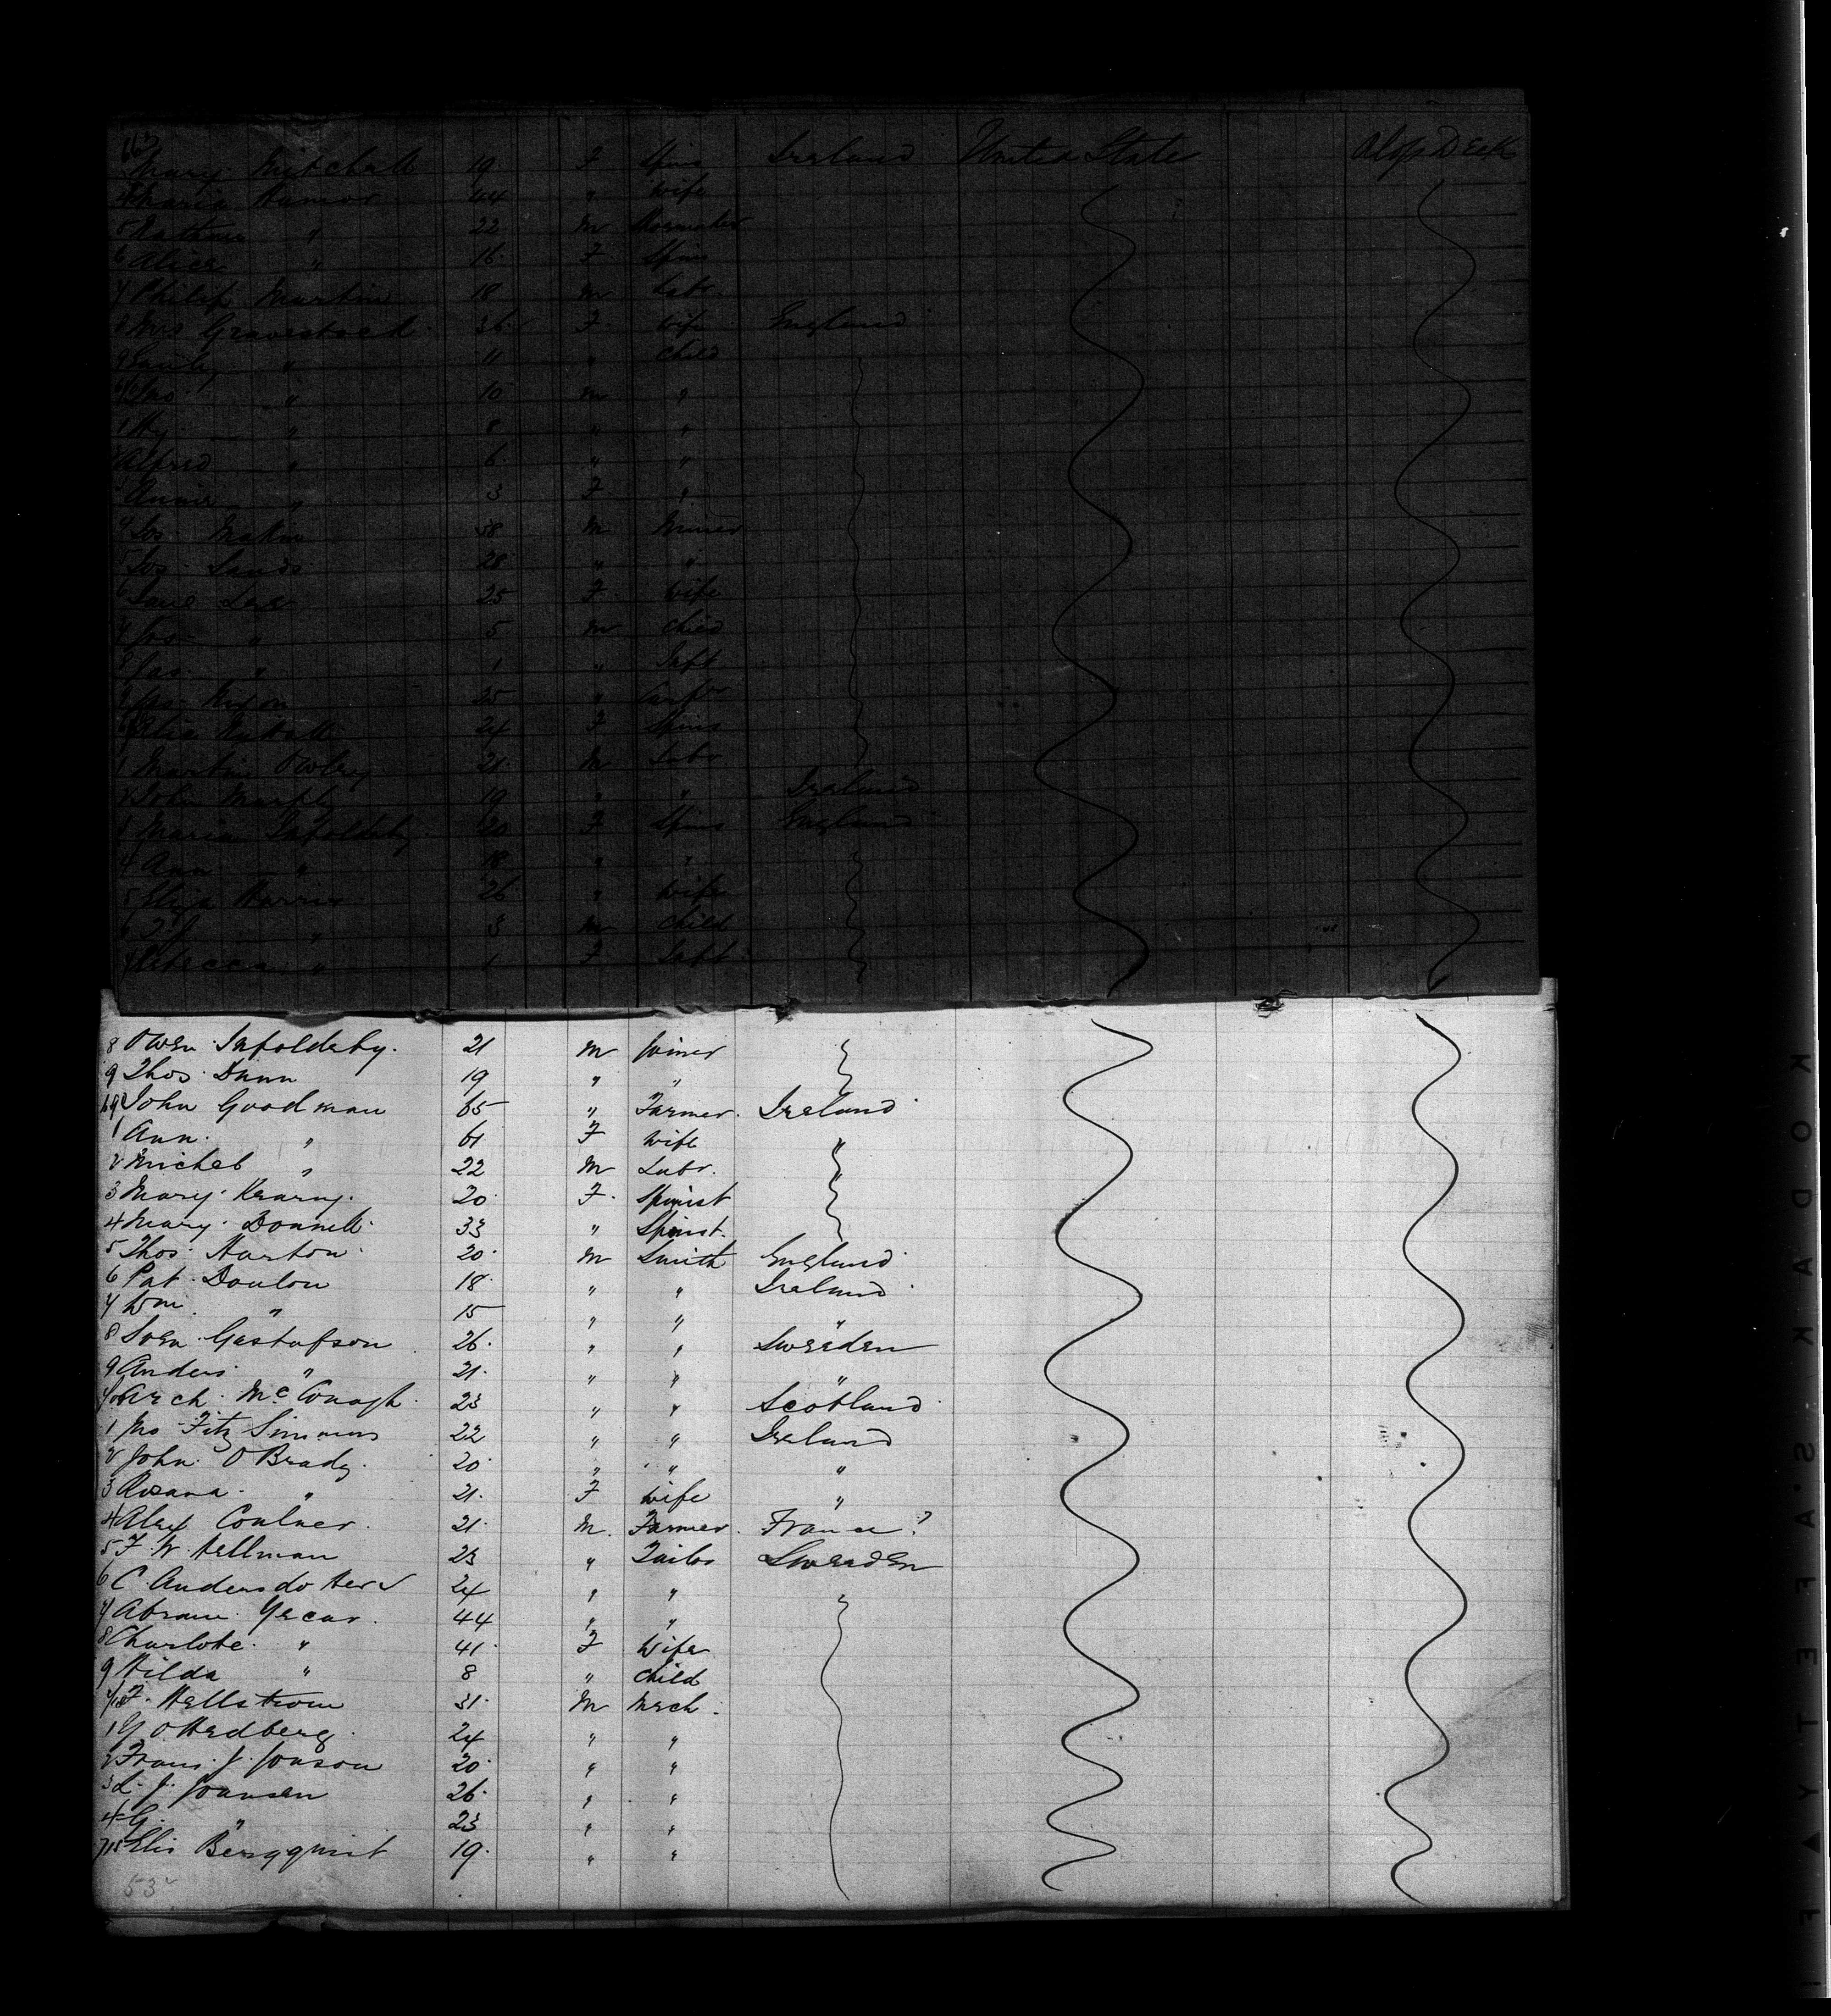 663 Mary Mitchell 19 F Spins Ireland United State Aloft Deck
4 Maria Humor 44 " Wife
5 " 22 M
6 Alice " 16 F Spins
7 Philip Martin 18 M Labr.
8 Mrs Gravestock 36 F Wife England
9 Emily " 11 " Child
" 10 M "
1 Hy. " 8 " "
2 Alfred " 6 " "
3 Annie " 3 F "
4 Jos Makin 38 M Miner
5 Jos Sands 28 " "
6 Jane Lee 25 F Wife
7 Jos " 5 M Child
8 Jas. " 1 " Inft
9 Jos Nixon 25 "
24 F Spins
1 Martin Owley 21 M Labr
2 John Murphy 19 " " Ireland
3 Maria Ingoldsby 20 F Spins England
4 Ann " 18 " "
5 Eliza Harris 26 " Wife
6 " 3 M Child
7 Rebecca " 1 F Inft
8 Owen Ingoldsby. 21 M Joiner
9 Thos. Dunn 19 " "
690 John Goodman 65 " Farmer. Ireland
1 Ann. " 61 F Wife "
2 Michel " 22 M Labr. "
3 Mary Kearny. 20 F. Spinst
4 Mary Donnell 33 " Spinst.
5 Thos. Harton 20 M Smith England
6 Pat. Donlon 18 " " Ireland
7 Wm. " 15 " " "
8 Sven Gustafson 26 " " Sweeden
9 Anders " 21 " " "
700 Arch. McConagh 23 " " Scotland
1 Jno Fitz Simmons 22 " " Ireland
2 John O Brady. 20 " " "
3 Rosana " 21 F Wife "
4 Alex Coulner. 21 M. Farmer. France?
5 F. W. Hellman 23 " Tailor Sweeden
6 C. Andersdotter 24 " "
7 Abram Yecar. 44 " "
8 Charlote. " 41 F Wife
9 Hilda " 8 " Child
710 F. Hellstrom 31 M Mech.
1 G. O Hedberg. 24 " "
2 Frans. J. Jonson 20 " "
3 L. J. Joansen 26 " "
4 G. " 23 " "
715 Elis Bergquist 19. " "
53